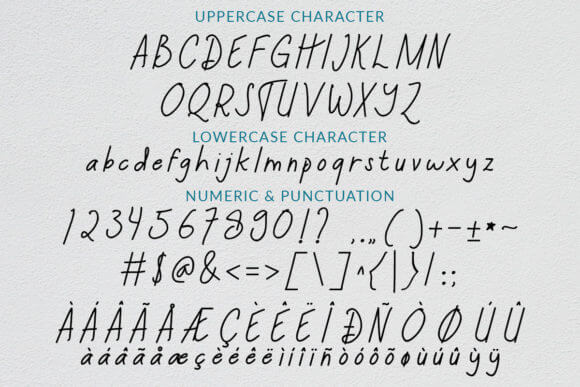 UPPERCASE CHARACTER
ABCDEFGHIJKLMN
OQRSTUVWXYZ
LOWERCASE CHARACTER
abcdefghijklmnpoqrstuvwxyz
NUMERIC & PUNCTUATION
1234567890!? ,.„( )+-±*~
#$@&<=>[\]^{|}/:;
ÀÁÂÃÅÆÇÈÉÊËÌÐÑ Ò Ø Ú Û
àáâãäæçèéêëìíîïñòóôõøùúûỳÿ